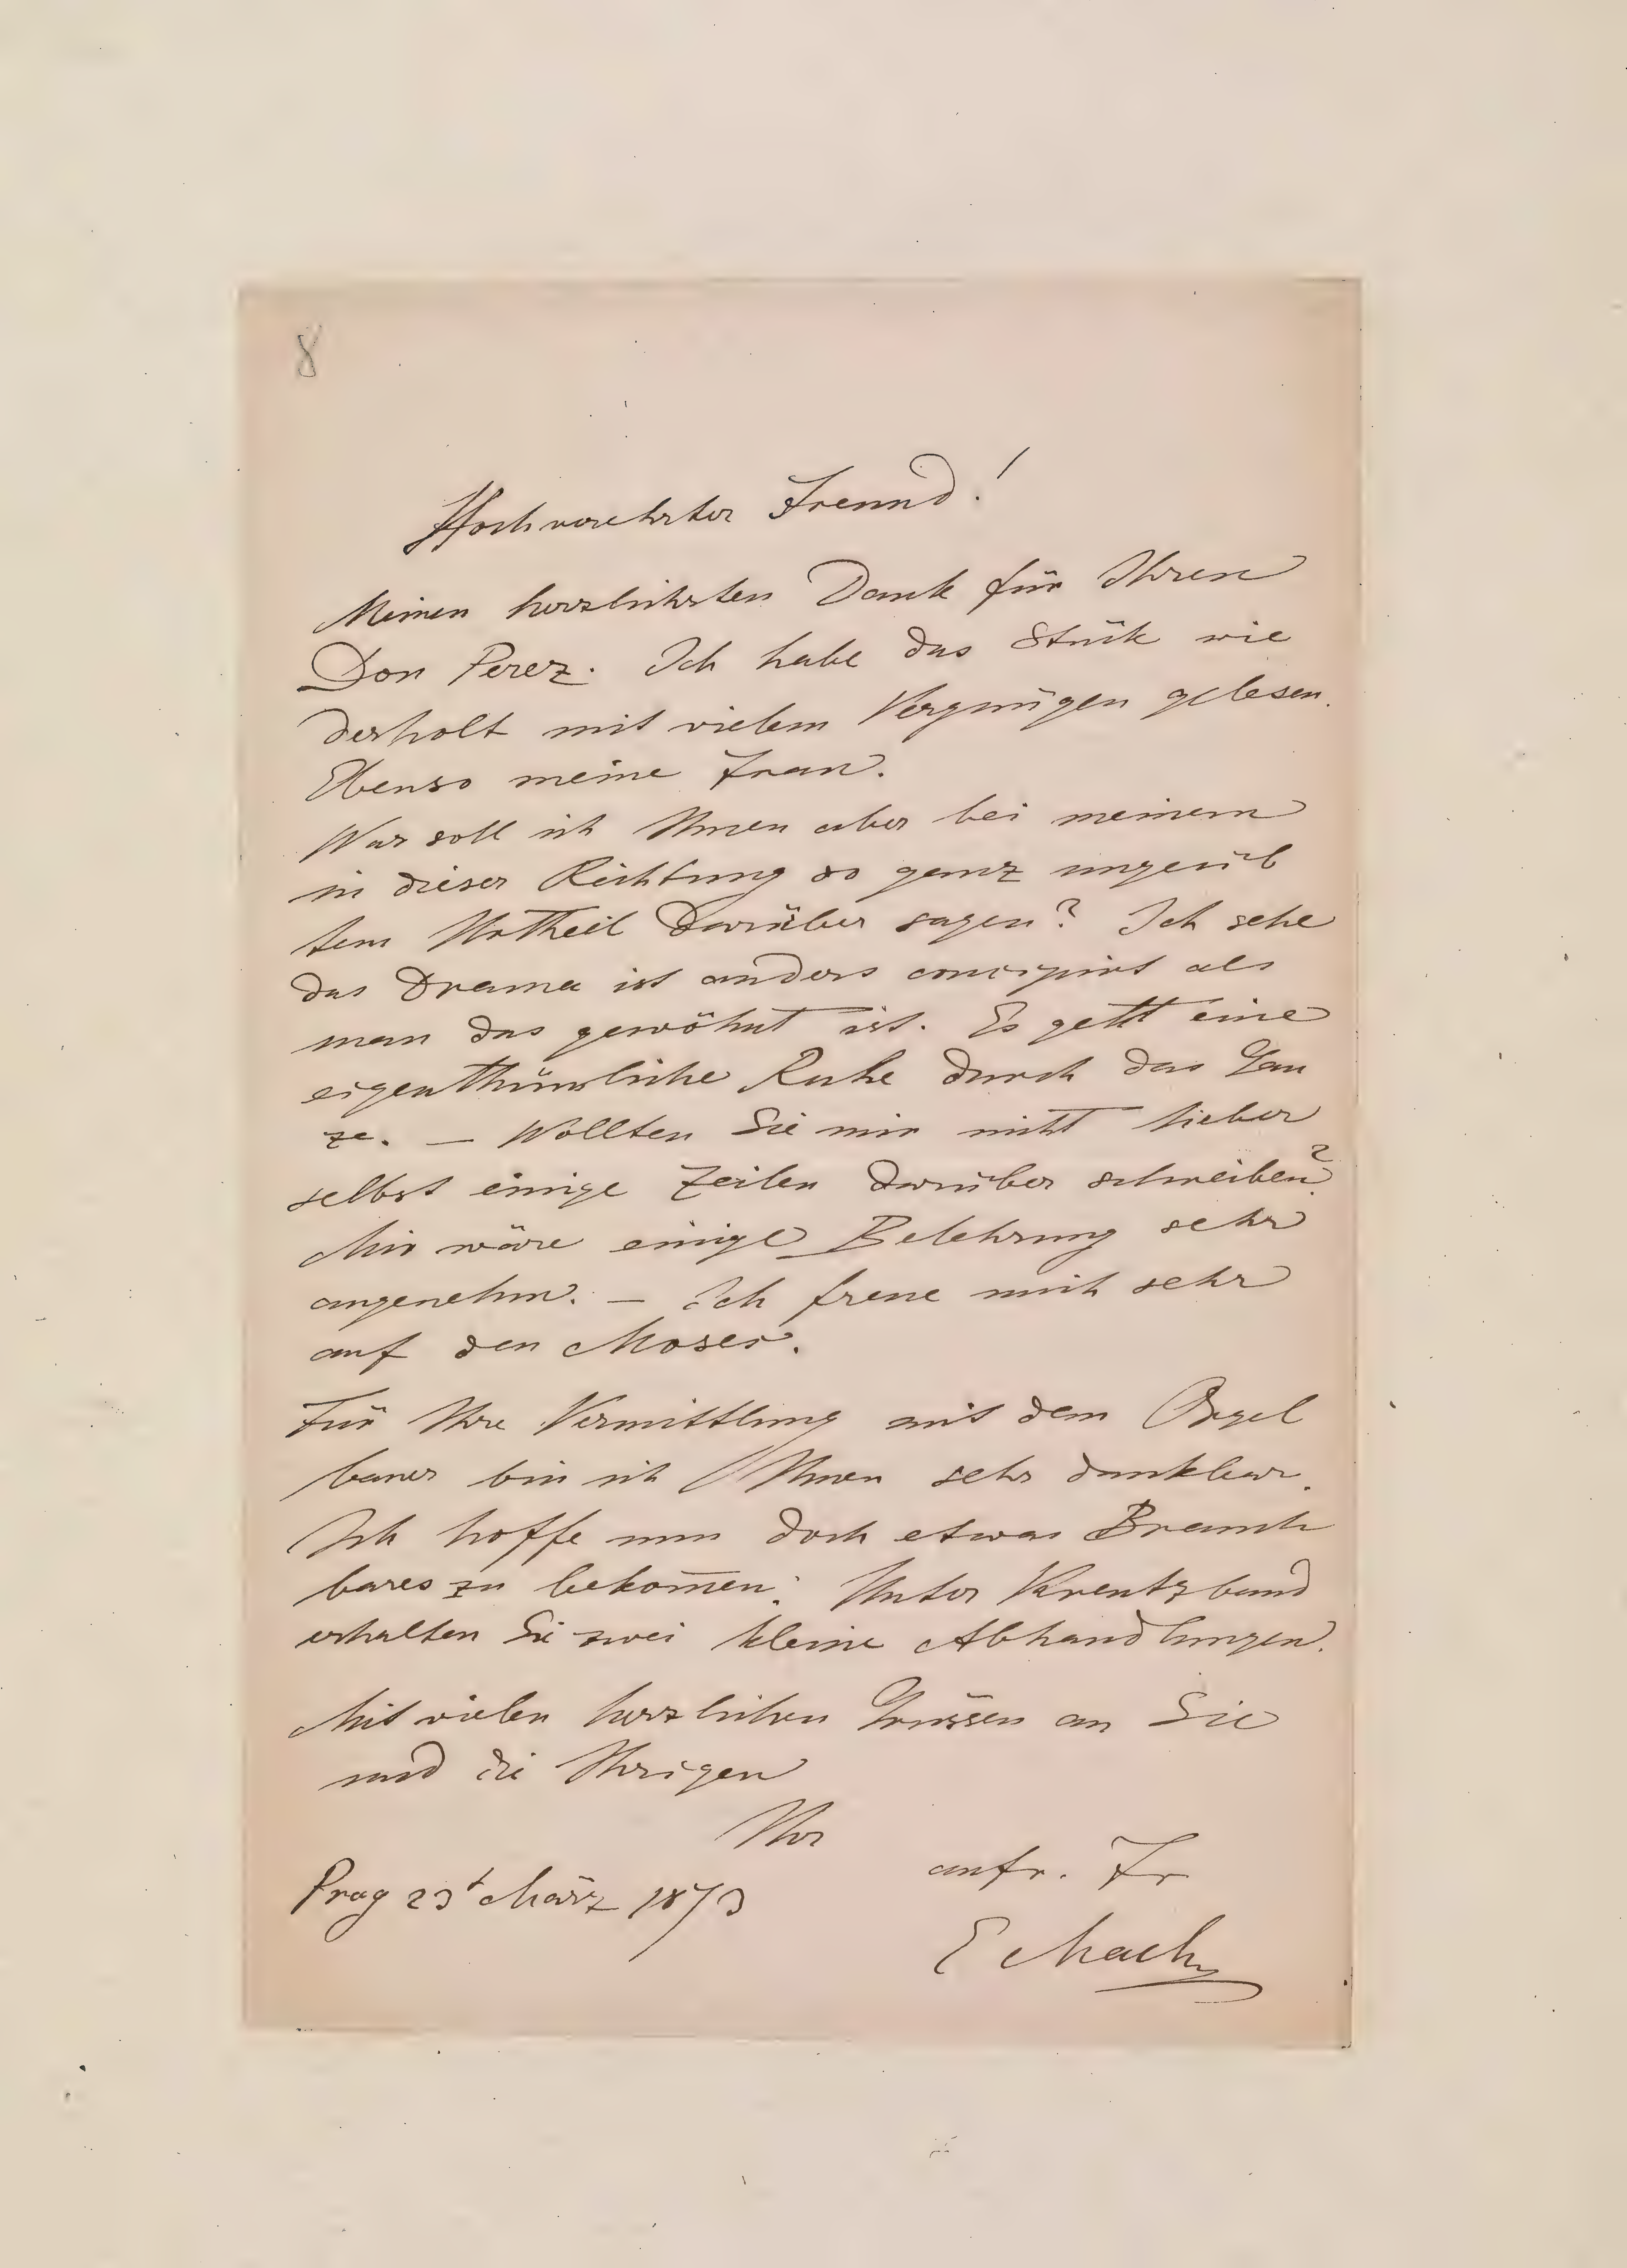 8
Hochverehrter Freund!
Meinen herzlichsten Dank für Ihren
Don Perez. Ich habe das Stük wie
derholt mit vielem Vergnügen gelesen.
Ebenso meine Frau.
Was soll ich Ihnen aber bei meinem
in dieser Richtung so ganz ungeüb
tem Urtheil darüber sagen? Ich sehe
das Drama ist anders concipirt als
man das gewöhnt ist. Es geht eine
eigenthümliche Ruhe durch das Gan
ze. — Wollten Sie mir nicht lieber
selbst einige Zeilen darüber schreiben?
Mir wäre einige Belehrung sehr
angenehm. — Ich freue mich sehr
auf den Moses.
Für Ihre Vermittlung mit dem Orgel
bauer bin ich Ihnen sehr dankbar.
Ich hoffe nun doch etwas Brauch
bares zu bekom̅en. Unter Kreutzband
erhalten Sie zwei kleine Abhandlungen.
Mit vielen herzlichen Grüssen an Sie
und die Ihrigen
Ihr
aufr. Fr
Prag 23t März 1873
E Mach